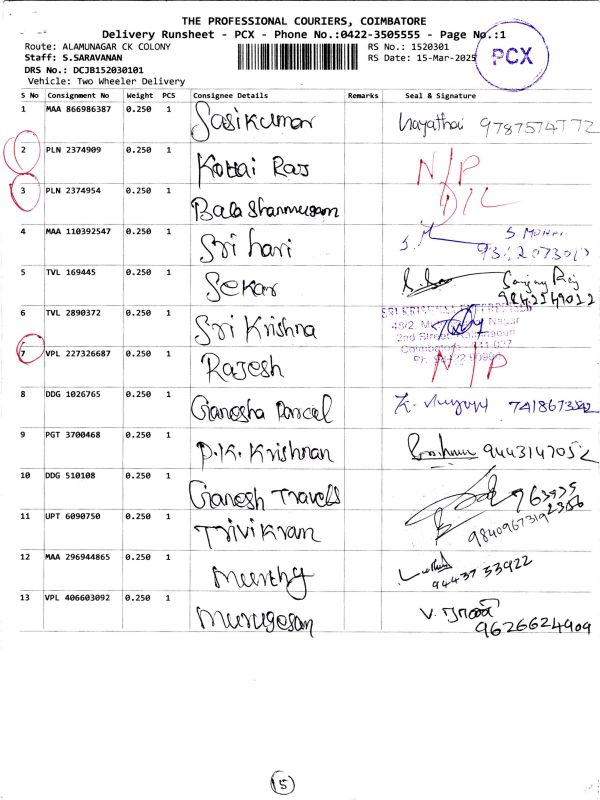 THE PROFESSIONAL COURIERS, COIMBATORE
Delivery Runsheet - PCX - Phone No.:0422-3505555 - Page No.:1
Route: ALAMUNAGAR CK COLONY
RS No.: 1520301
Staff: S.SARAVANAN
RS Date: 15-Mar-2025
PCX
DRS No.: DCJB152030101
Vehicle: Two Wheeler Delivery
S No Consignment No Weight PCS Consignee Details Remarks Seal & Signature
1 MAA 866986387 0.250 1 Sasikumar
2 PLN 2374909 0.250 1 Kottai Raj N/P
3 PLN 2374954 0.250 1 Bala Shanmugam D/L
4 MAA 110392547 0.250 1 Sri hari
5 TVL 169445 0.250 1 Sekar Sanjay Raj
9842549022
6 TVL 2890372 0.250 1 Sri Krishna
7 VPL 227326687 0.250 1 Rajesh N/P
8 DDG 1026765 0.250 1 Ganesha Parcel
9 PGT 3700468 0.250 1 P.K. Krishnan 9443147052
10 DDG 510108 0.250 1 Ganesh Travels
11 UPT 6090750 0.250 1 Trivikran 9840967319
12 MAA 296944865 0.250 1 Murthy 9443753922
13 VPL 406603092 0.250 1 Murugesan
9626624909
15